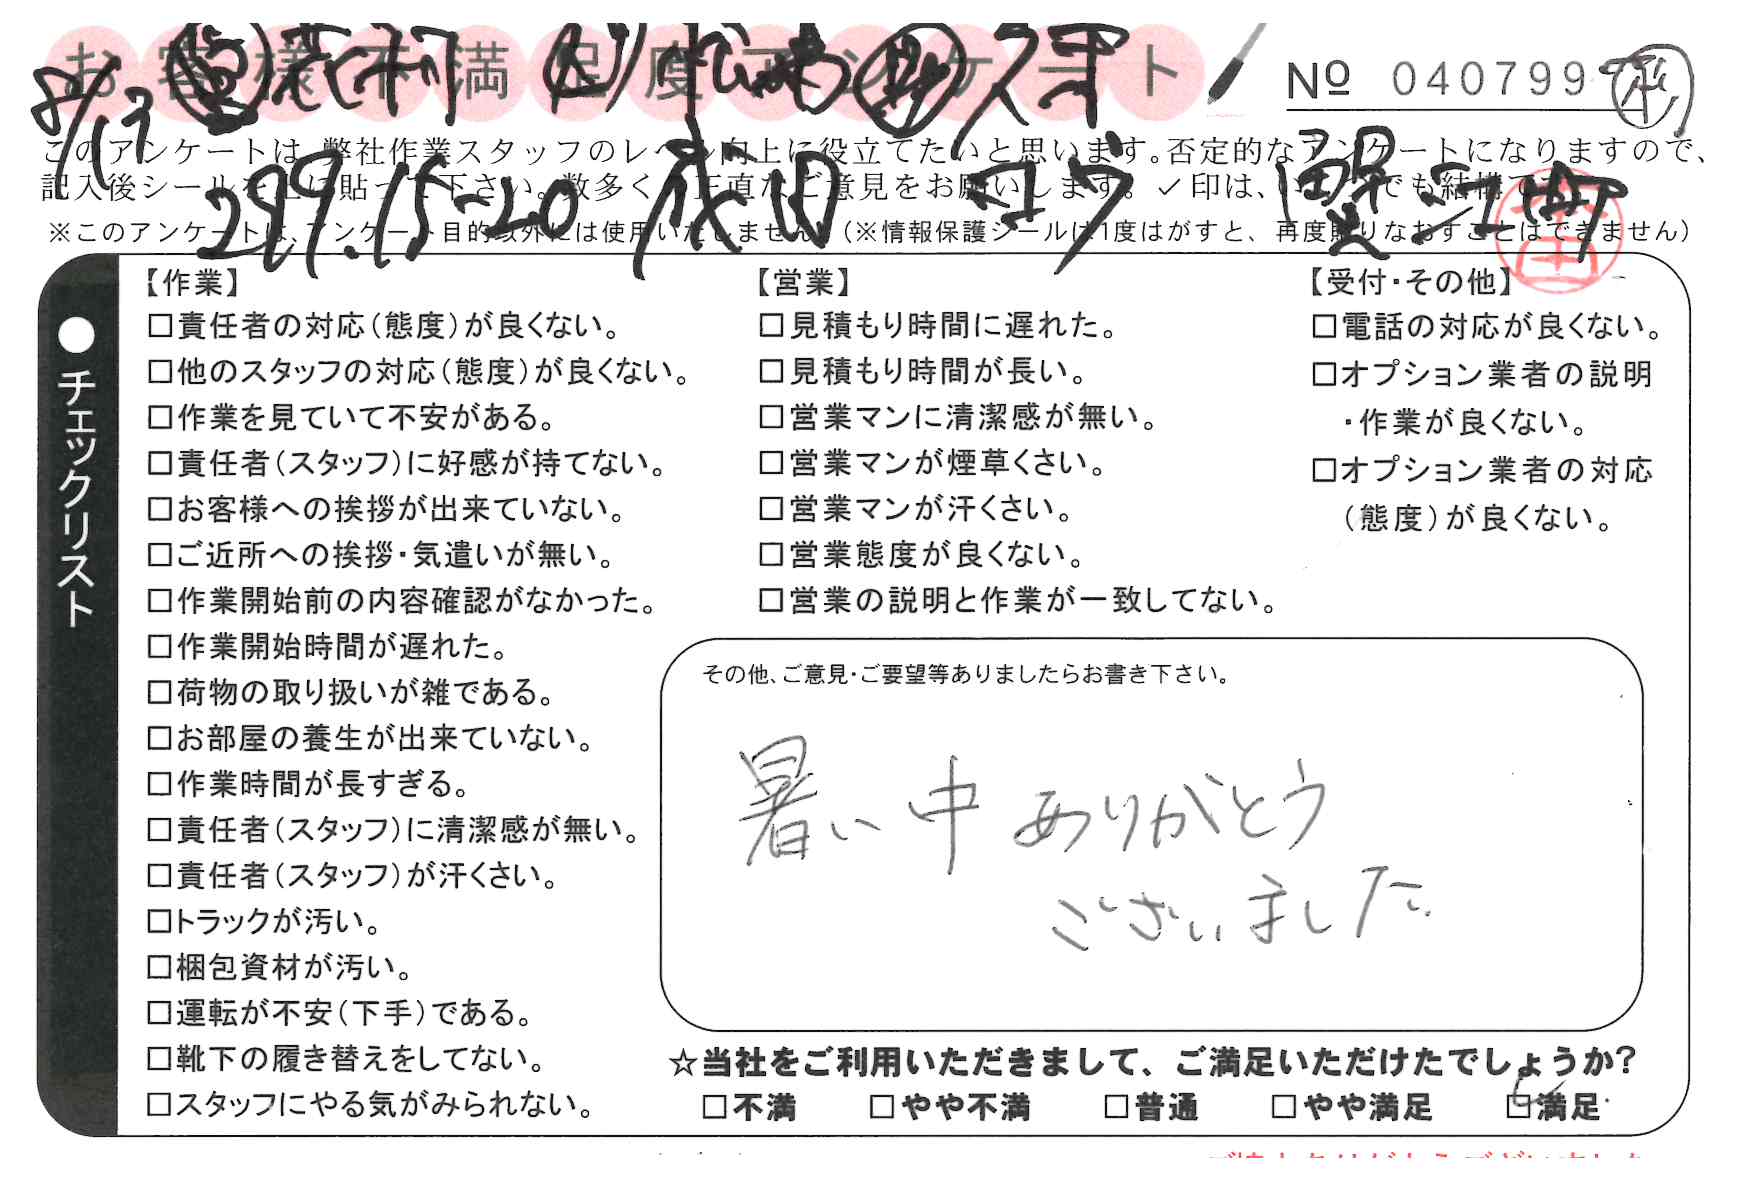 お客様不満足度アンケート
№ 040799
8/13
289.15-20
このアンケートは、弊社作業スタッフのレベル向上に役立てたいと思います。否定的なアンケートになりますので、
記入後シールを上に貼って下さい。数多くの正直なご意見をお願いします。✓印は、いくつでも結構です。
※このアンケートは、アンケート目的以外には使用いたしません。(※情報保護シールは1度はがすと、再度貼りなおすことはできません)
●チェックリスト
【作業】
□責任者の対応(態度)が良くない。
□他のスタッフの対応(態度)が良くない。
□作業を見ていて不安がある。
□責任者(スタッフ)に好感が持てない。
□お客様への挨拶が出来ていない。
□ご近所への挨拶・気遣いが無い。
□作業開始前の内容確認がなかった。
□作業開始時間が遅れた。
□荷物の取り扱いが雑である。
□お部屋の養生が出来ていない。
□作業時間が長すぎる。
□責任者(スタッフ)に清潔感が無い。
□責任者(スタッフ)が汗くさい。
□トラックが汚い。
□梱包資材が汚い。
□運転が不安(下手)である。
□靴下の履き替えをしてない。
□スタッフにやる気がみられない。
【営業】
□見積もり時間に遅れた。
□見積もり時間が長い。
□営業マンに清潔感が無い。
□営業マンが煙草くさい。
□営業マンが汗くさい。
□営業態度が良くない。
□営業の説明と作業が一致してない。
【受付・その他】
□電話の対応が良くない。
□オプション業者の説明
・作業が良くない。
□オプション業者の対応
(態度)が良くない。
その他、ご意見・ご要望等ありましたらお書き下さい。
暑い中ありがとう
ございました
☆当社をご利用いただきまして、ご満足いただけたでしょうか?
□不満 □やや不満 □普通 □やや満足 ☑満足